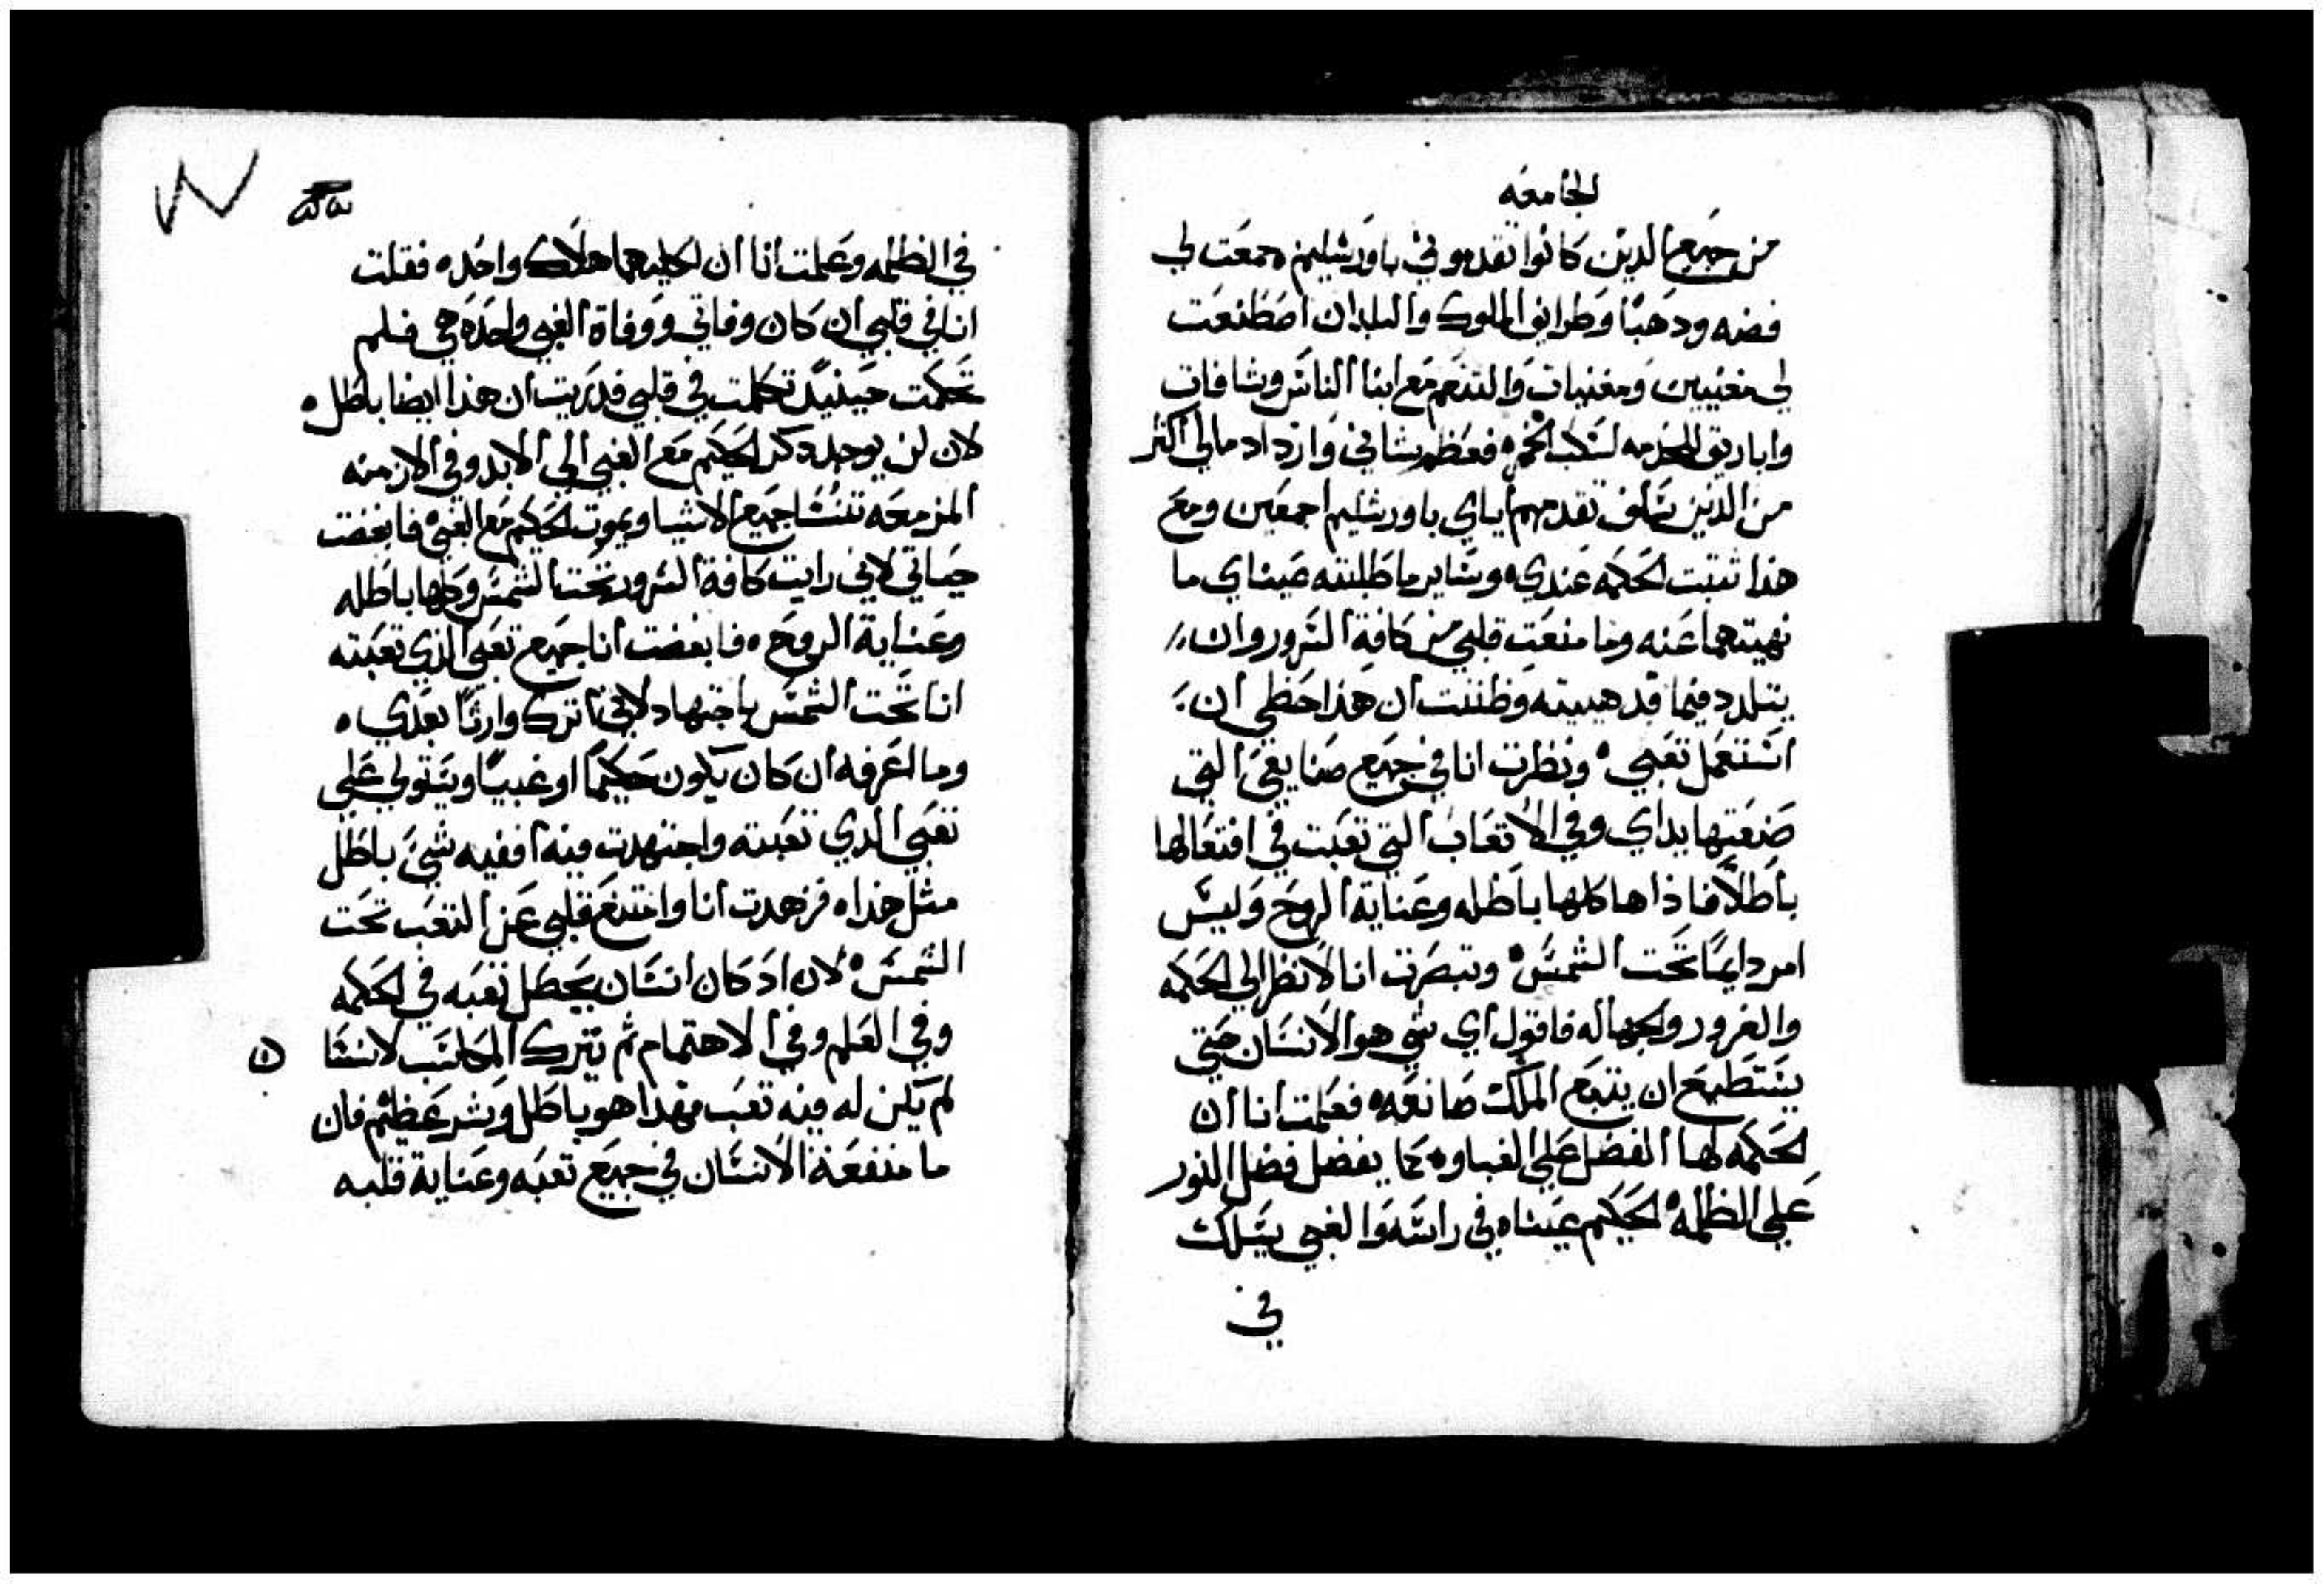 الجامعه
من جميع الدين كانوا تقدموني باورشليم جمعت لي
فضه ودهبًا وطرايف الملوك والبلدان اصطنعت
لي مغنيين ومغنيات والتنعم مع ابنا الناس وساقات
واباريق لسكب الخمر فعظم شاني وازداد مالي اكثر
من الدين سلف تقدمهم اياي باورشليم اجمعين ومع
هذا ثبتت الحكمه عندي وساير ما طلبته عيناي ما
نهيتهما عنه وما منعت قلبي من كافة السرور وان
يتلدد فيما قد هييته وظننت ان هذا حظي ان
استعمل تعبي ونظرت انا في جميع صنايعي التي
صنعتها يداي وفي الاتعاب التي تعبت في افتعالها
باطلاً فاذاها كلها باطله وعناية الروح وليس
امر دايمًا تحت الشمس وتبصرت انا لانظر الي الحكمه
والغرور والجهاله فاقول اي شي هو الانسان حتي
يستطيع ان يتبع الملك صانعه فعلمت انا ان
الحكمه لها الفضل علي الغباوه كما يفضل فضل النور
علي الظلمه الحكيم عيناه في راسه والغبي يسلك
في
في الظلمه وعلمت انا ان لكليهما هلاك واحده فقلت
انا في قلبي ان كان وفاتي ووفاة الغبي واحده هي فلم
تحكمت حينيد تكلمت في قلبي فدريت ان هذا ايضا باطل
لان لن يوجد دكر الحكيم مع الغبي الي الابد وفي الازمنه
المزمعه تنسا جميع الاشيا ويموت الحكيم مع الغبي فابغضت
حياتي لاني رايت كافة السرور تحت الشمس وكلها باطله
وعناية الروح فابغضت انا جميع تعبي الذي تعبته
انا تحت الشمس باجتهاد لاني اترك وارثًا بعدي
وما اعرفه ان كان يكون حكيمًا او غبيًا ويتولي علي
تعبي الدي تعبته واجتهدت فيه افقيه شيء باطل
مثل هذا فزهدت انا وامتنع قلبي عن التعب تحت
الشمس لان اد كان انسان يحصل تعبه في الحكمه
وفي العلم وفي الاهتمام ثم يترك المكاسب لانسا
ن
لم يكن له فيه تعب فهدا هو باطل وشر عظيم فان
ما منفعة الانسان في جميع تعبه وعناية قلبه